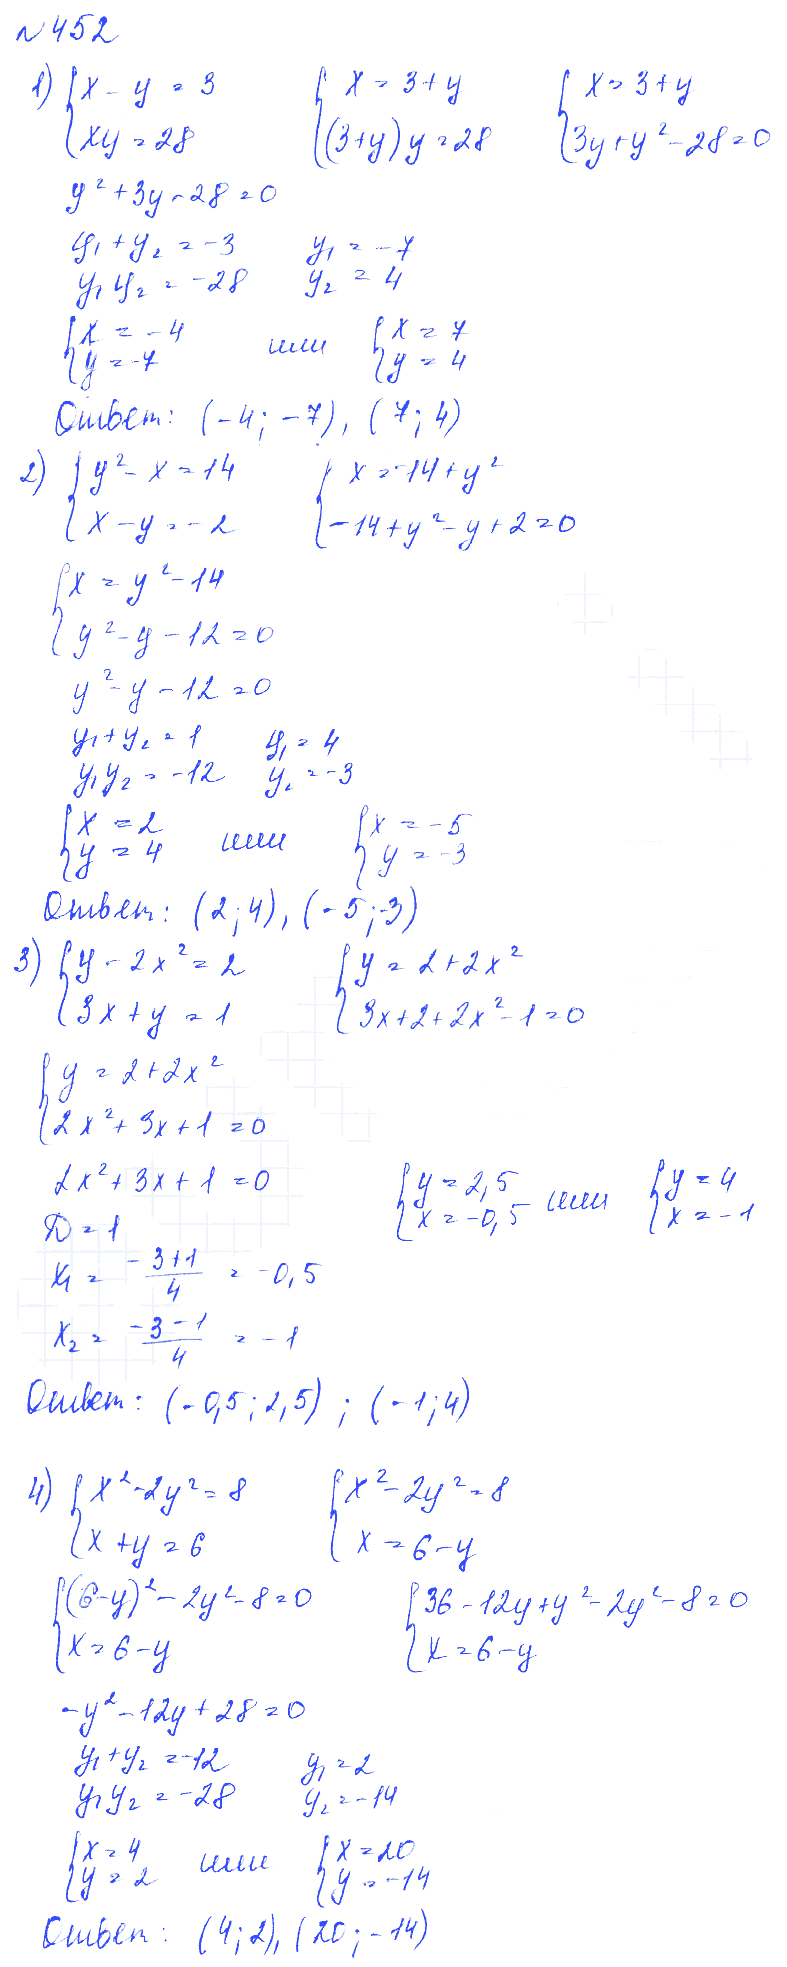 №452
1) { x - y = 3   { x = 3 + y   { x = 3 + y
{ xy = 28   { (3+y) y = 28   { 3y + y² - 28 = 0
y² + 3y - 28 = 0
y₁ + y₂ = -3   y₁ = -7
y₁ y₂ = -28   y₂ = 4
{ x = -4   или   { x = 7
{ y = -7   { y = 4
Ответ: (-4; -7), (7; 4)
2) { y² - x = 14   { x = -14 + y²
{ x - y = -2   { -14 + y² - y + 2 = 0
{ x = y² - 14
{ y² - y - 12 = 0
y² - y - 12 = 0
y₁ + y₂ = 1   y₁ = 4
y₁ y₂ = -12   y₂ = -3
{ x = 2   или   { x = -5
{ y = 4   { y = -3
Ответ: (2; 4), (-5; -3)
3) { y - 2x² = 2   { y = 2 + 2x²
{ 3x + y = 1   { 3x + 2 + 2x² - 1 = 0
{ y = 2 + 2x²
{ 2x² + 3x + 1 = 0
2x² + 3x + 1 = 0   { y = 2,5   или   { y = 4
D = 1   { x = -0,5   { x = -1
x₁ = (-3+1)/4 = -0,5
x₂ = (-3-1)/4 = -1
Ответ: (-0,5; 2,5) ; (-1; 4)
4) { x² - 2y² = 8   { x² - 2y² = 8
{ x + y = 6   { x = 6 - y
{ (6-y)² - 2y² - 8 = 0   { 36 - 12y + y² - 2y² - 8 = 0
{ x = 6 - y   { x = 6 - y
-y² - 12y + 28 = 0
y₁ + y₂ = -12   y₁ = 2
y₁ y₂ = -28   y₂ = -14
{ x = 4   или   { x = 20
{ y = 2   { y = -14
Ответ: (4; 2), (20; -14)